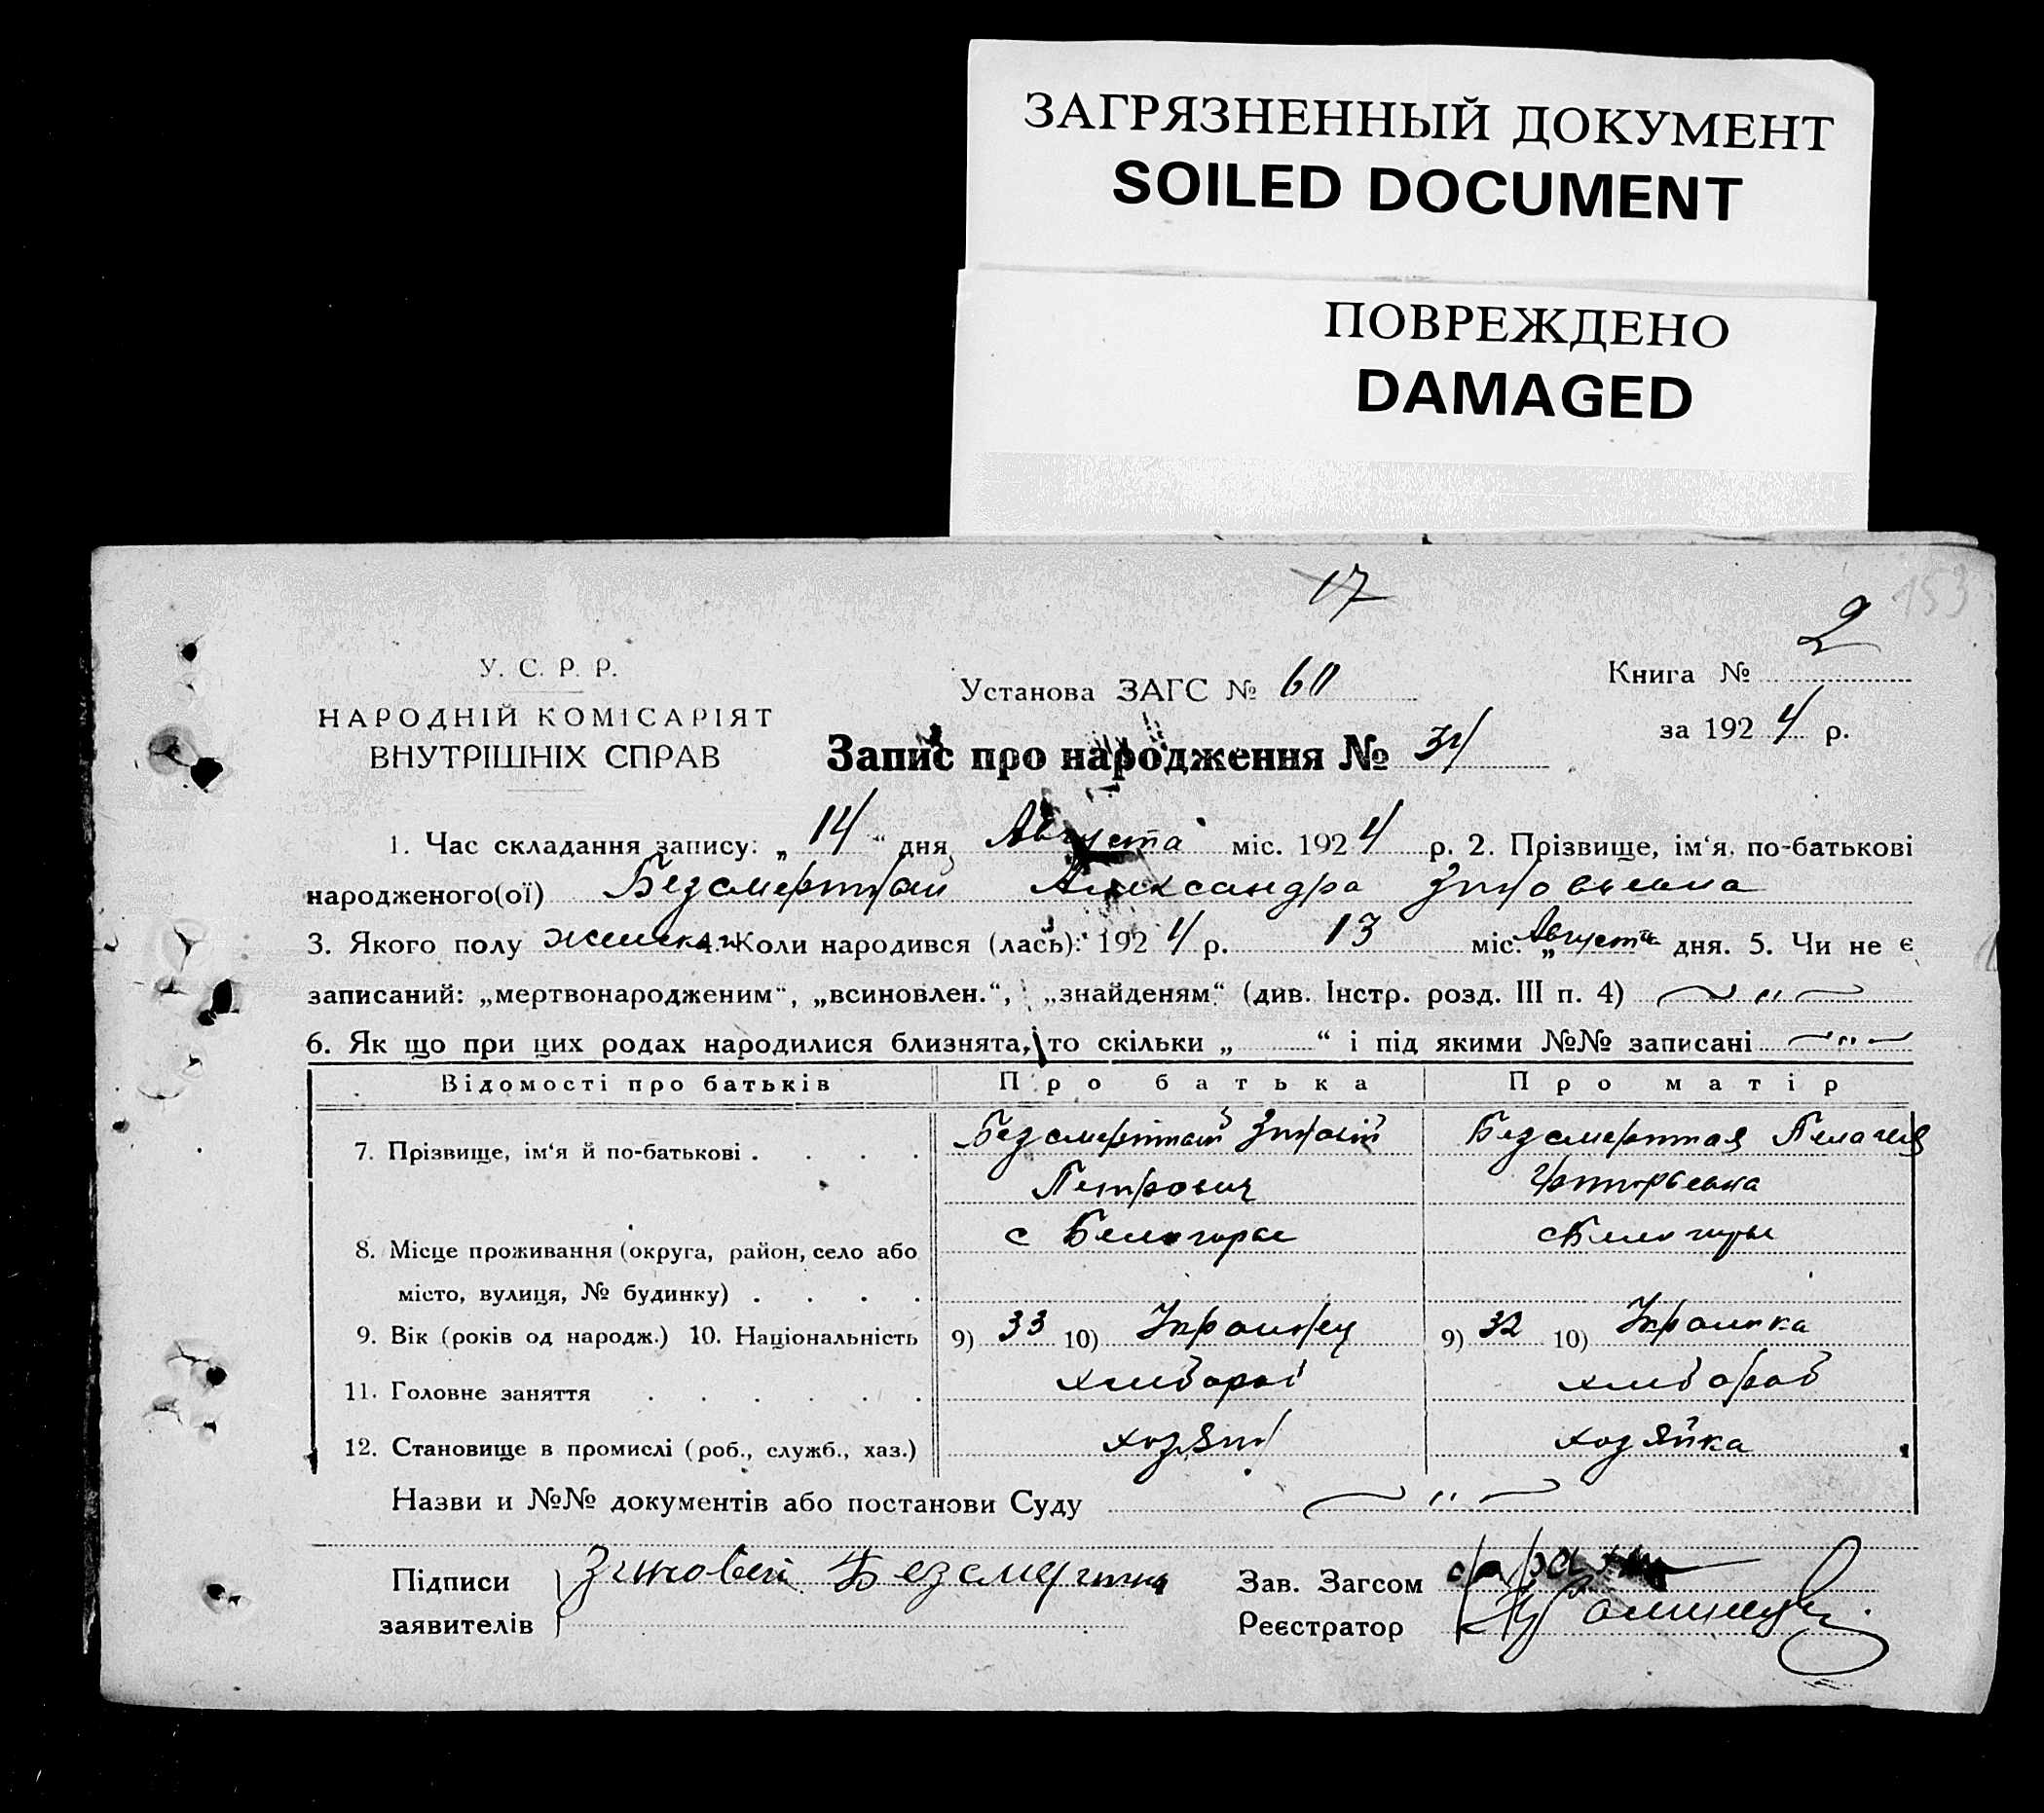 ЗАГРЯЗНЕННЫЙ ДОКУМЕНТ
SOILED DOCUMENT
ПОВРЕЖДЕНО
DAMAGED
17
153
У. С. Р. Р.
НАРОДНІЙ КОМІСАРІЯТ
ВНУТРІШНІХ СПРАВ
Установа ЗАГС № 60
Книга № 2
за 1924 р.
Запис про народження №
1. Час складання запису: „14“ дня Августа міс. 1924 р. 2. Прізвище, ім‘я, по-батькові
народженого(ої) Безсмертная Александра Зиновьевна
3. Якого полу женска 4. Коли народився (лась): 1924 р. 13 міс. „Августа дня. 5. Чи не є
записаний: „мертвонародженим“, „всиновлен.“, „знайденям“ (див. Інстр. розд. III п. 4) „
6. Як що при цих родах народилися близнята, то скільки „ “ і під якими №№ записані „
Відомості про батьків Про батька Про матір
7. Прізвище, ім‘я й по-батькові . . . . Безсмертний Зиновій Безсмертная Пелагея
Петрович
8. Місце проживання (округа, район, село або с Белогорье с Белогорье
місто, вулиця, № будинку) . . . .
9. Вік (років од народж.) 10. Національність 9) 33 10) Украинец 9) 32 10) Украинка
11. Головне заняття . . . . . . хлебороб хлебороб
12. Становище в промислі (роб., служб., хаз.) хозяин хозяйка
Назви и №№ документів або постанови Суду „
Підписи Зиновей Безсмертни Зав. Загсом
заявителів Реєстратор